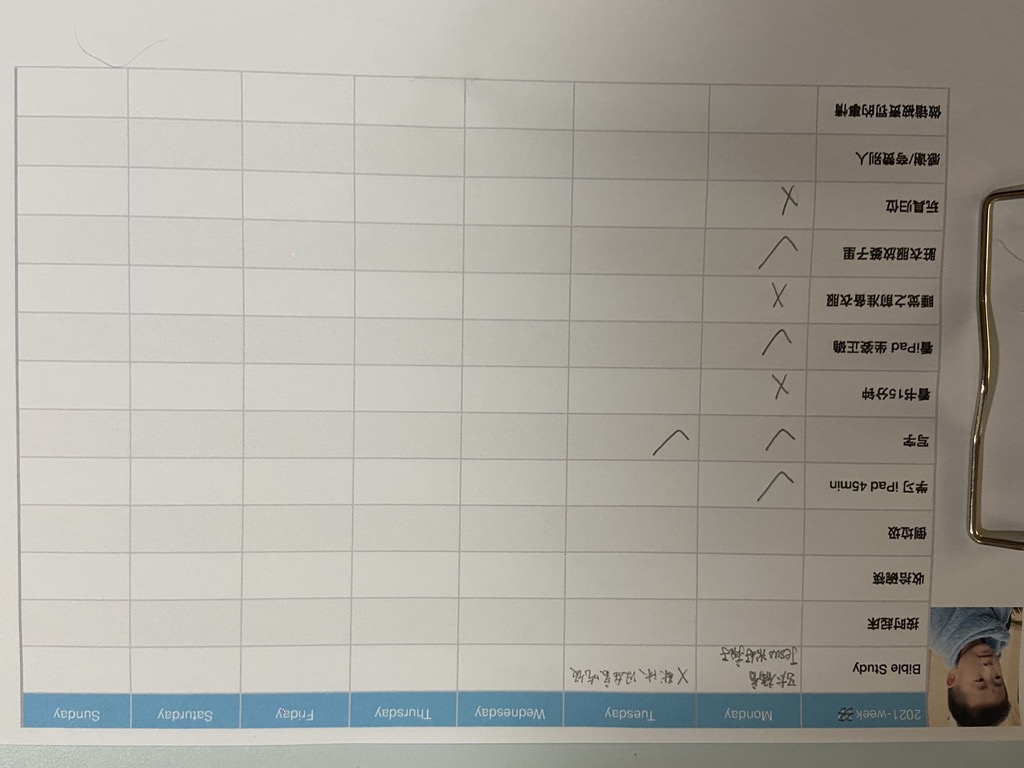 2021-week 33 Monday Tuesday Wednesday Thursday Friday Saturday Sunday
Bible Study
福音
Jesus 治好
X 没在家吃饭
按时起床
收拾碗筷
倒垃圾
学习 iPad 45min ✓
写字 ✓ ✓
看书15分钟 X
看iPad 坐姿正确 ✓
睡觉之前准备衣服 X
脏衣服放篓子里 ✓
玩具归位 X
感谢/夸赞别人
做错被责罚的事情